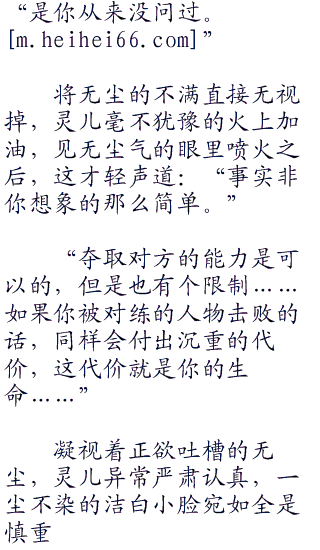 “是你从来没问过。
[m.heihei66.com]”
将无尘的不满直接无视
掉，灵儿毫不犹豫的火上加
油，见无尘气的眼里喷火之
后，这才轻声道：“事实非
你想象的那么简单。”
“夺取对方的能力是可
以的，但是也有个限制……
如果你被对练的人物击败的
话，同样会付出沉重的代
价，这代价就是你的生
命……”
凝视着正欲吐槽的无
尘，灵儿异常严肃认真，一
尘不染的洁白小脸宛如全是
慎重